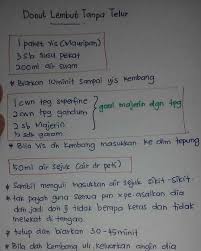 Donut Lembut Tanpa Telur
1 paket yis (Mauripan)
3 sb susu pekat
200ml air suam
* Biarkan 10minit sampai yis kembang
1 cwn tpg superfine
2 cwn tpg gandum
2 sb Majerin
½ sdk garam
gaul majerin dgn tpg
* Bila yis dh kembang masukkan ke dlm tepung
50ml air sejuk (air dr peti)
* Sambil menguli masukkan air sejuk sikit-sikit.
* tak payah guna semua pun xpe.asalkan dia
dah jadi doh & tidak berapa keras dan tidak
melekat di tangan.
* tutup dan biarkan 30-45minit
* Bila dah kembang uli, keluarkan angin dia